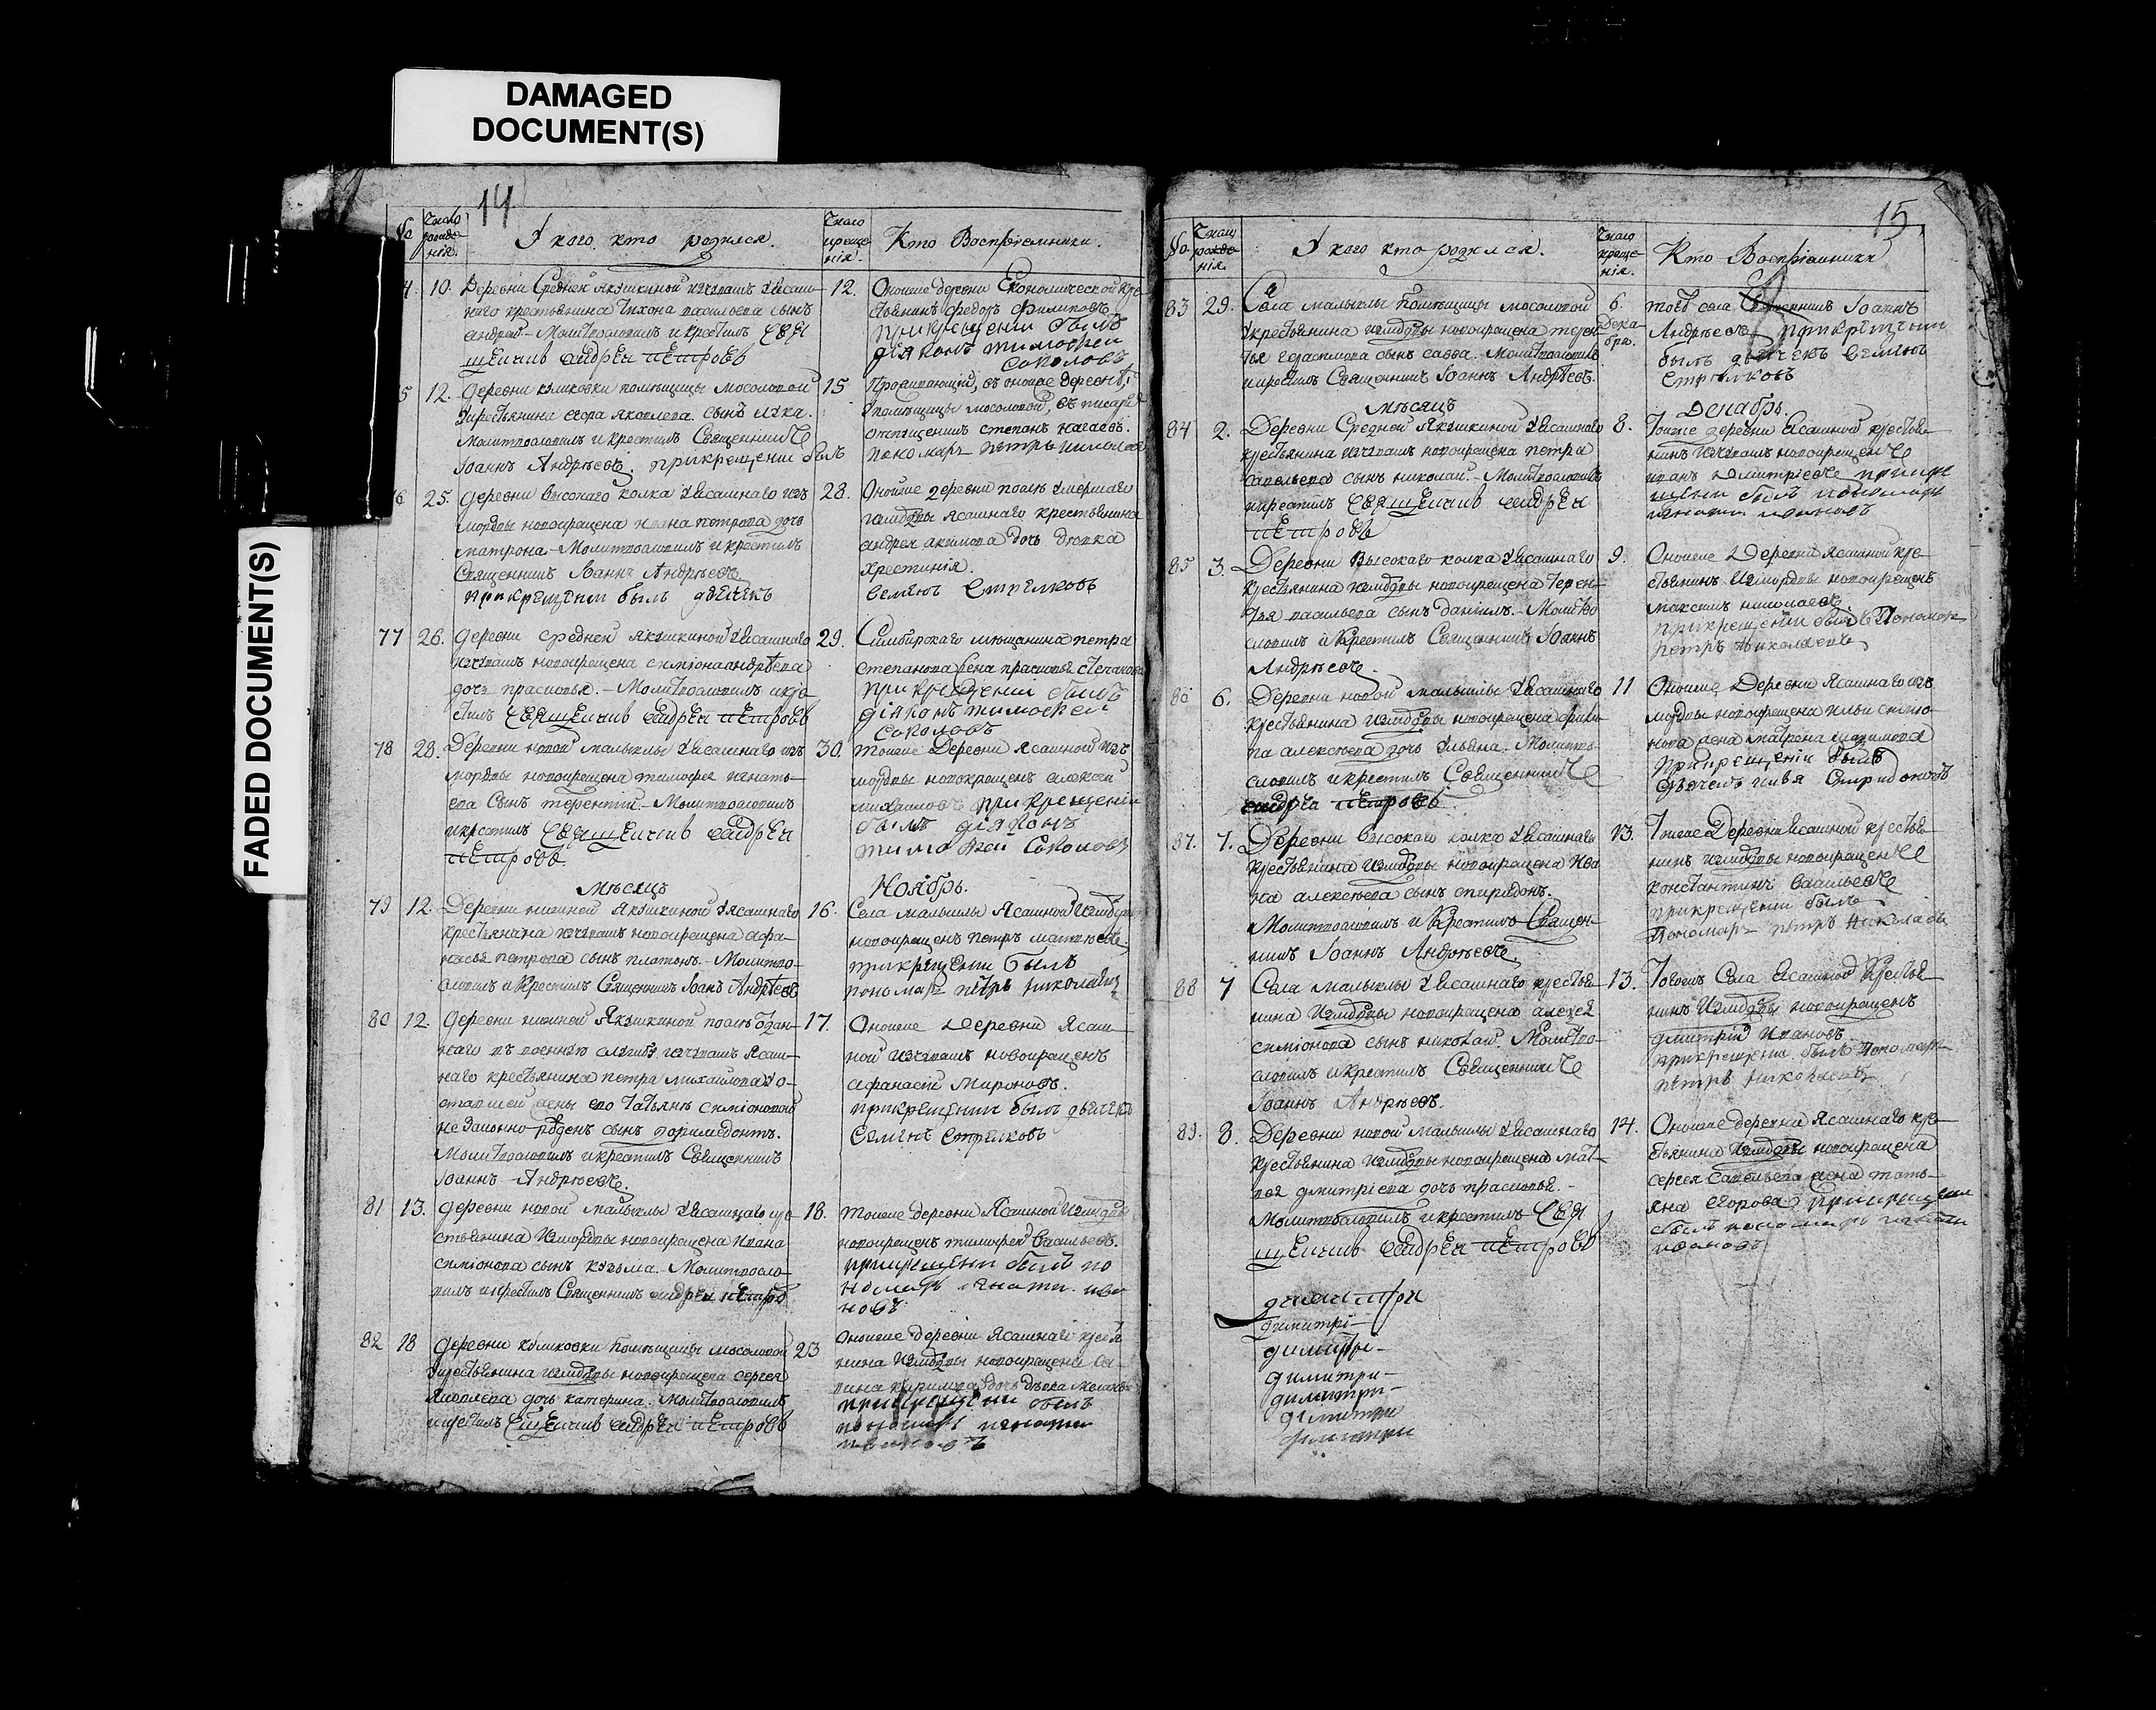 DAMAGED
DOCUMENT(S)
FADED DOCUMENT(S)
14
Число рожде-нія.
У кого кто родился.
Число креще-нія.
Кто Воспріемники.
10. Деревни Средней Якушкиной изчувашъ Ясаш-
наго крестьянина Тихона васильева сынъ
андрей - Молитвословилъ и крестилъ Свя
щенникъ андрей петровъ
12. Оноиже деревни Економической кре
стьянинъ федоръ филиповъ
прикрещении былъ
діяконъ тимофеи
Соколовъ
12. деревни куликовки помѣщицы мосоловой
крестьянина егора яковлева сынъ лука.
молитвословилъ и крестилъ Священникъ
Іоаннъ Андрѣевъ.
15 Проживающій, въ оноиже деревнѣ,
помѣщицы мосоловой,
степанъ нагаевъ.
прикрещении былъ
пономарь петръ николаевъ
25. деревни высокаго колка Ясашнаго изъ
мордвы новокрещена ивана петрова дочь
матрона - Молитвословилъ и крестилъ
Священникъ Іоаннъ Андрѣевъ
28. Оноиже деревни
измордвы ясашнаго крестьянина
андрея акимова дочь дѣвка
христинія.
прикрещении былъ дьячекъ
Семенъ Стрелковъ
77 26. деревни средней якушкиной Ясашнаго
изчувашъ новокрещена симіона андрѣева
дочь прасковья. - Молитвословилъ икре
стилъ Священникъ андрей петровъ
29. Симбирскаго мѣщанина петра
степанова жена прасковья степанова
прикрещении былъ
діяконъ тимофеи
Соколовъ
78 28. Деревни новой малыклы Ясашнаго изъ
мордвы новокрещена тимофея игнать-
ева Сынъ терентій. - Молитвословилъ
икрестилъ Священникъ андрей
петровъ
30. тоиже Деревни ясашной изъ
мордвы новокрещенъ алексей
михаиловъ прикрещении
былъ діяконъ
тимофеи Соколовъ
Мѣсяцъ Ноябрь.
79 12. Деревни нижней Якушкиной Ясашнаго
крестьянина изчувашъ новокрещена афа-
насья петрова сынъ платонъ. - Молитво-
словилъ и Крестилъ Священникъ Іоанъ Андрѣевъ
16. Села малыклы Ясашной измордвы
новокрещенъ петръ матвѣевъ.
прикрещении былъ
пономарь петръ николаевъ
80 12. деревни нижней Якушкиной послѣ Задан-
наго въ военную службу изчувашъ Ясаш-
наго крестьянина петра михайлова у о-
ставшей жены его Татьяны симіоновой
незаконно рожденъ сынъ доримедонтъ.
Молитвословилъ и крестилъ Священникъ
Іоаннъ Андрѣевъ.
17. Оноиже деревни Ясаш-
ной изчувашъ новокрещенъ
афанасій Мироновъ.
прикрещении былъ дьячекъ
Семенъ Стрелковъ
81 13. деревни новой малыклы Ясашнаго кре
стьянина измордвы новокрещена ивана
симіонова сынъ козьма. - Молитвосло-
вилъ и крестилъ Священникъ андрей петровъ
18. тоиже деревни Ясашной измордвы
новокрещенъ тимофей Васильевъ.
прикрещении былъ по
номарь игнати ива
новъ
82 18 деревни куликовки Помѣщицы мосоловой
крестьянина измордвы новокрещена сергея
Яковлева дочь катерина. Молитвословилъ
икрестилъ Священникъ андрей петровъ
23 Оноиже деревни Ясашнаго крестья
нина измордвы новокрещена
кирилова дочь дѣвка
прикрещении былъ
пономарь игнати
ивановъ
15
Число рожде-нія.
У кого кто родился.
Число креще-нія.
Кто Воспріемники
83 29. Села малыклы Помѣщицы мосоловой
крестьянина измордвы новокрещена терен-
тья сынъ савва. Молитвословилъ
икрестилъ Священникъ Іоаннъ Андрѣевъ.
6. Дека-бря. тогѣ села Священникъ Іоаннъ
Андрѣевъ прикрещении
былъ дьячекъ Семенъ
Стрелковъ
Мѣсяцъ Декабрь.
84 2. Деревни Средней Якушкиной Ясашнаго
крестьянина изчувашъ новокрещена петра
савельева сынъ николай. - Молитвословилъ
икрестилъ Священникъ андрей
петровъ
8. Тоиже деревни Ясашной крестья-
нинъ изчувашъ новокрещенъ
иванъ Дмитріевъ прикре
щении былъ пономарь
игнати ивановъ
85 3. Деревни Высокаго колка Ясашнаго
крестьянина измордвы новокрещена Терен-
тья васильева сынъ даніилъ. - Молитво
словилъ и Крестилъ Священникъ Іоаннъ
Андрѣевъ.
9. Оноиже Деревни Ясашной кре-
стьянинъ Измордвы новокрещенъ
максимъ николаевъ.
прикрещении былъ Пономарь
петръ николаевъ
86 6. Деревни новой малыклы Ясашнаго
крестьянина измордвы новокрещена
алексѣева дочь ульяна. Молитво-
словилъ икрестилъ Священникъ
андрей петровъ
11 Оноиже Деревни Ясашнаго изъ
мордвы новокрещена ильи симіо-
нова жена матрона
прикрещеніи былъ
дьячекъ Спиридоновъ
87. 7. Деревни Высокаго колка Ясашнаго
крестьянина измордвы новокрещена Ива
на алексѣева сынъ спиридонъ.
Молитвословилъ и Крестилъ Священ-
никъ Іоаннъ Андрѣевъ.
13. Тоиже Деревни Ясашной крестья-
нинъ измордвы новокрещенъ
константинъ Васильевъ
прикрещении былъ
Пономарь петръ николаевъ
88 7 Села малыклы Ясашнаго крестья-
нина Измордвы новокрещена алексея
симіонова сынъ николай. Молитво-
словилъ икрестилъ Священникъ
Іоаннъ Андрѣевъ.
13. Тогожъ Села Ясашной Крестья-
нинъ Измордвы новокрещенъ
дмитрій Ивановъ.
прикрещении былъ Пономарь
петръ николаевъ
89. 8. Деревни новой малыклы Ясашнаго
крестьянина измордвы новокрещена мат-
вея дмитріева дочь прасковья. -
Молитвословилъ икрестилъ Свя
щенникъ андрей петровъ
14. Оноиже деревни Ясашнаго кре-
стьянина измордвы новокрещена
сергея Савельева жена тать-
яна Егорова прикрещении
былъ пономарь игнати
ивановъ
димитри
димитрі-
димитри-
димитри-
димитри-
димитри
димитри